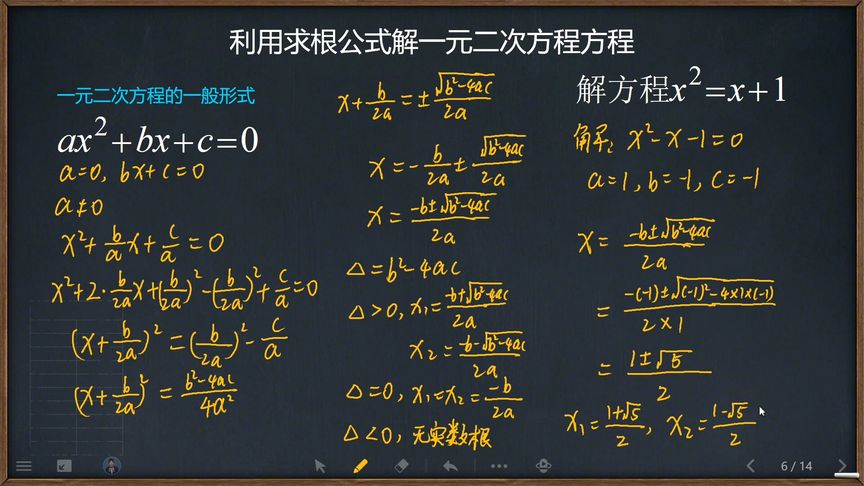 利用求根公式解一元二次方程方程
一元二次方程的一般形式
ax²+bx+c=0
a=0, bx+c=0
a≠0
x²+b/a x+c/a=0
x²+2·b/2a x+(b/2a)²-(b/2a)²+c/a=0
(x+b/2a)²=(b/2a)²-c/a
(x+b/2a)²=b²-4ac/4a²
x+b/2a=±√b²-4ac/2a
x=-b/2a±√b²-4ac/2a
x=-b±√b²-4ac/2a
△=b²-4ac
△>0, x₁=-b+√b²-4ac/2a
x₂=-b-√b²-4ac/2a
△=0, x₁=x₂=-b/2a
△<0, 无实数根
解方程x²=x+1
解: x²-x-1=0
a=1, b=-1, c=-1
x=-b±√b²-4ac/2a
=-(-1)±√(-1)²-4×1×(-1)/2×1
=1±√5/2
x₁=1+√5/2, x₂=1-√5/2
6 / 14